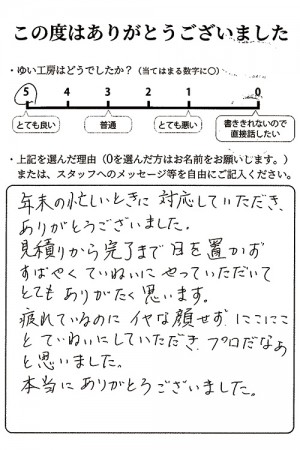 この度はありがとうございました
・ゆい工房はどうでしたか?(当てはまる数字に○)
5 4 3 2 1 0
とても良い 普通 とても悪い 書ききれないので
直接話したい
・上記を選んだ理由(0を選んだ方はお名前をお願いします。)
または、スタッフへのメッセージ等を自由にご記入ください。
年末の忙しいときに対応していただき、
ありがとうございました。
見積りから完了まで日を置かず
すばやくていねいにやっていただいて
とてもありがたく思います。
疲れているのにイヤな顔せず、にこにこ
とていねいにしていただき、プロだなあ
と思いました。
本当にありがとうございました。